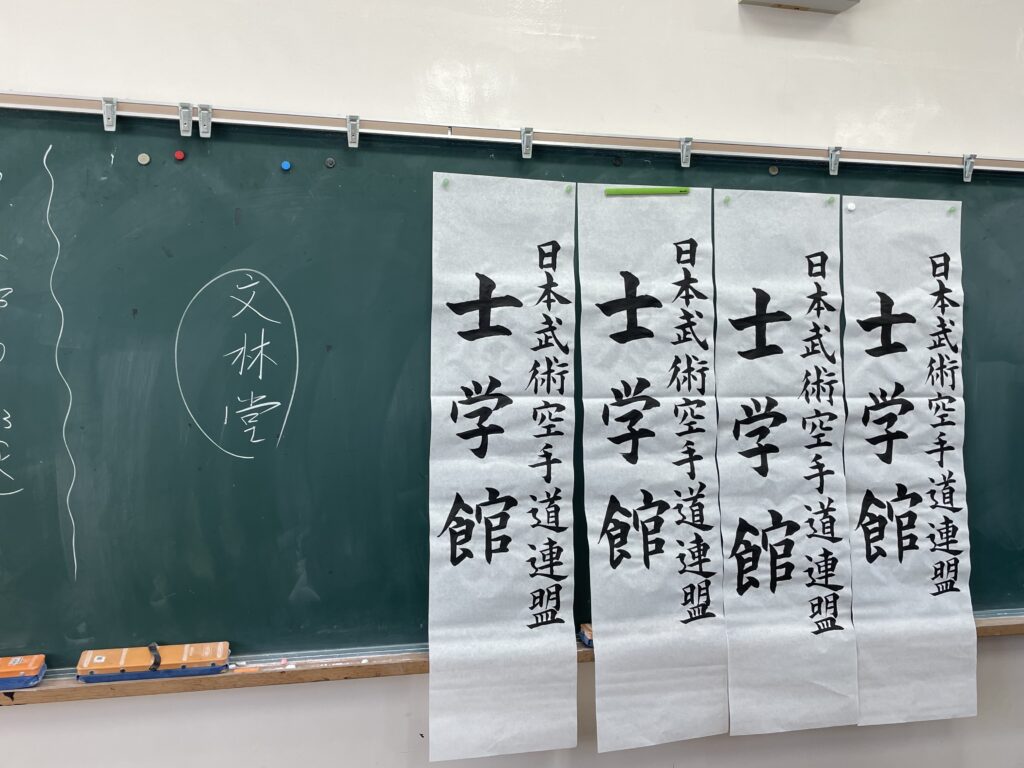 日本武術空手道連盟
士学館
日本武術空手道連盟
士学館
日本武術空手道連盟
士学館
日本武術空手道連盟
士学館
文林堂